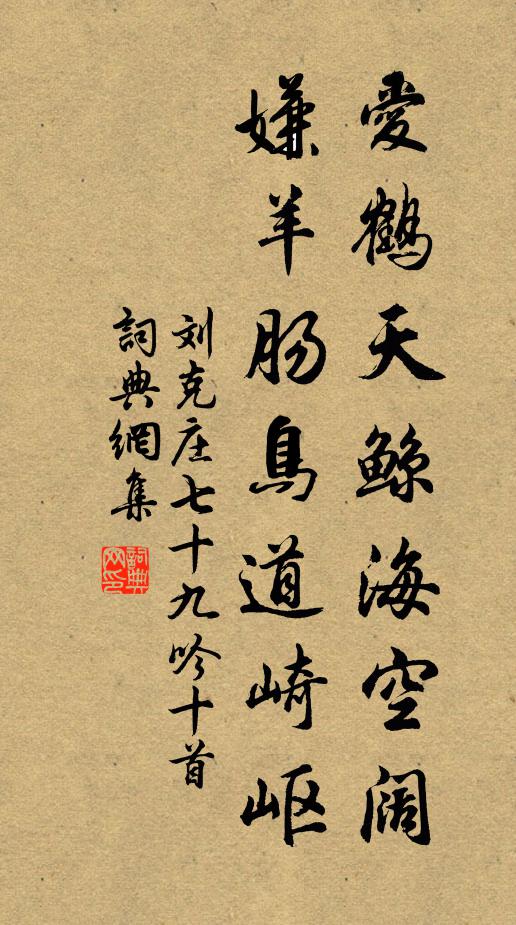 愛鶴天鲸海空阔
嫌羊肠鳥道崎岖
刘克庄七十九吟十首
詞典網集
詞典网印